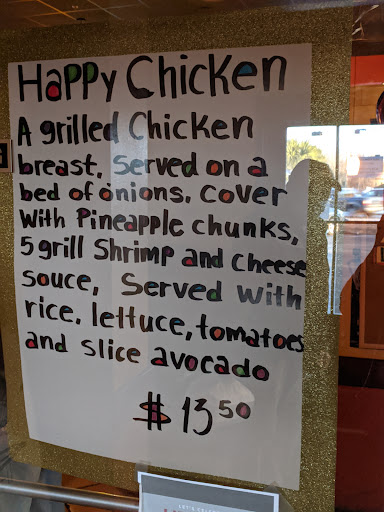 Happy Chicken
A grilled Chicken
breast, Served on a
bed of onions. cover
With Pineapple chunks,
5 grill Shrimp and Cheese
souce, Served With
rice, lettuce, tomatoes
and slice avocado
$13.50